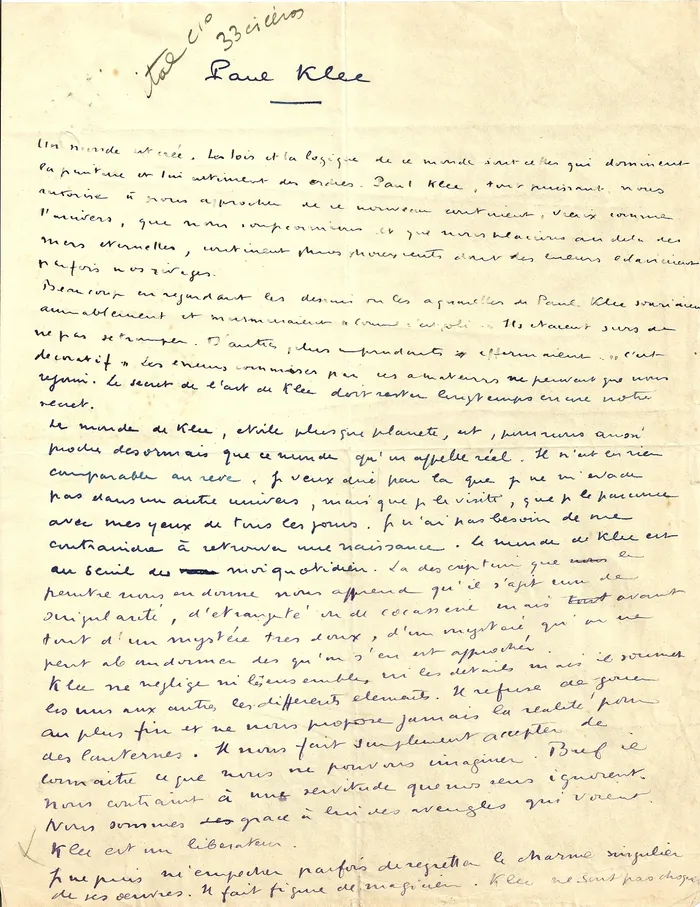 ital c10
33 cicéros
Paul Klee
Un monde est créé. Les lois et la logique de ce monde sont celles qui dominent
la peinture et lui intiment des ordres. Paul Klee, tout puissant, nous
autorise à nous approcher de ce nouveau continent, vieux comme
l'univers, que nous soupçonnions et que nous placions au delà des
mers éternelles, continent phosphorescents dont des lueurs éclairaient
parfois nos rivages.
Beaucoup en regardant les dessins ou les aquarelles de Paul Klee souriaient
aimablement et murmuraient « comme c'est joli » Ils étaient surs de
ne pas se tromper. D'autres, plus imprudents affirmaient « c'est
décoratif » Les erreurs commises par ces amateurs ne peuvent que nous
réjouir. Le secret de l'art de Klee doit rester longtemps encore notre
secret.
Le monde de Klee, étoile plus que planète, est, pour nous aussi
proche désormais que ce monde qu'on appelle réel. Il n'est en rien
comparable au rêve. Je veux dire par là que je ne m'évade
pas dans un autre univers, mais que je le visite, que je le parcours
avec mes yeux de tous les jours. Je n'ai pas besoin de me
contraindre à retrouver une naissance. Le monde de Klee est
au seuil de moi quotidien. La description que nous le
peintre nous en donne nous apprend qu'il s'agit non de
singularité, d'étrangeté ou de cocasserie mais tout avant
tout d'un mystère très doux, d'un mystère qu'on ne
peut abandonner dès qu'on s'en est approché.
Klee ne néglige ni les ensembles ni les détails mais il soumet
les uns aux autres les différents éléments. Il refuse de jouer
au plus fin et ne nous propose jamais la réalité pour
des lanternes. Il nous fait simplement accepter de
connaître ce que nous ne pouvons imaginer. Bref il
nous contraint à une servitude que nos sens ignorent.
Nous sommes grâce à lui des aveugles qui voient.
Klee est un libérateur.
Je ne puis m'empêcher parfois de regretter le charme singulier
de ses œuvres. Il fait figure de magicien. Klee ne sont pas